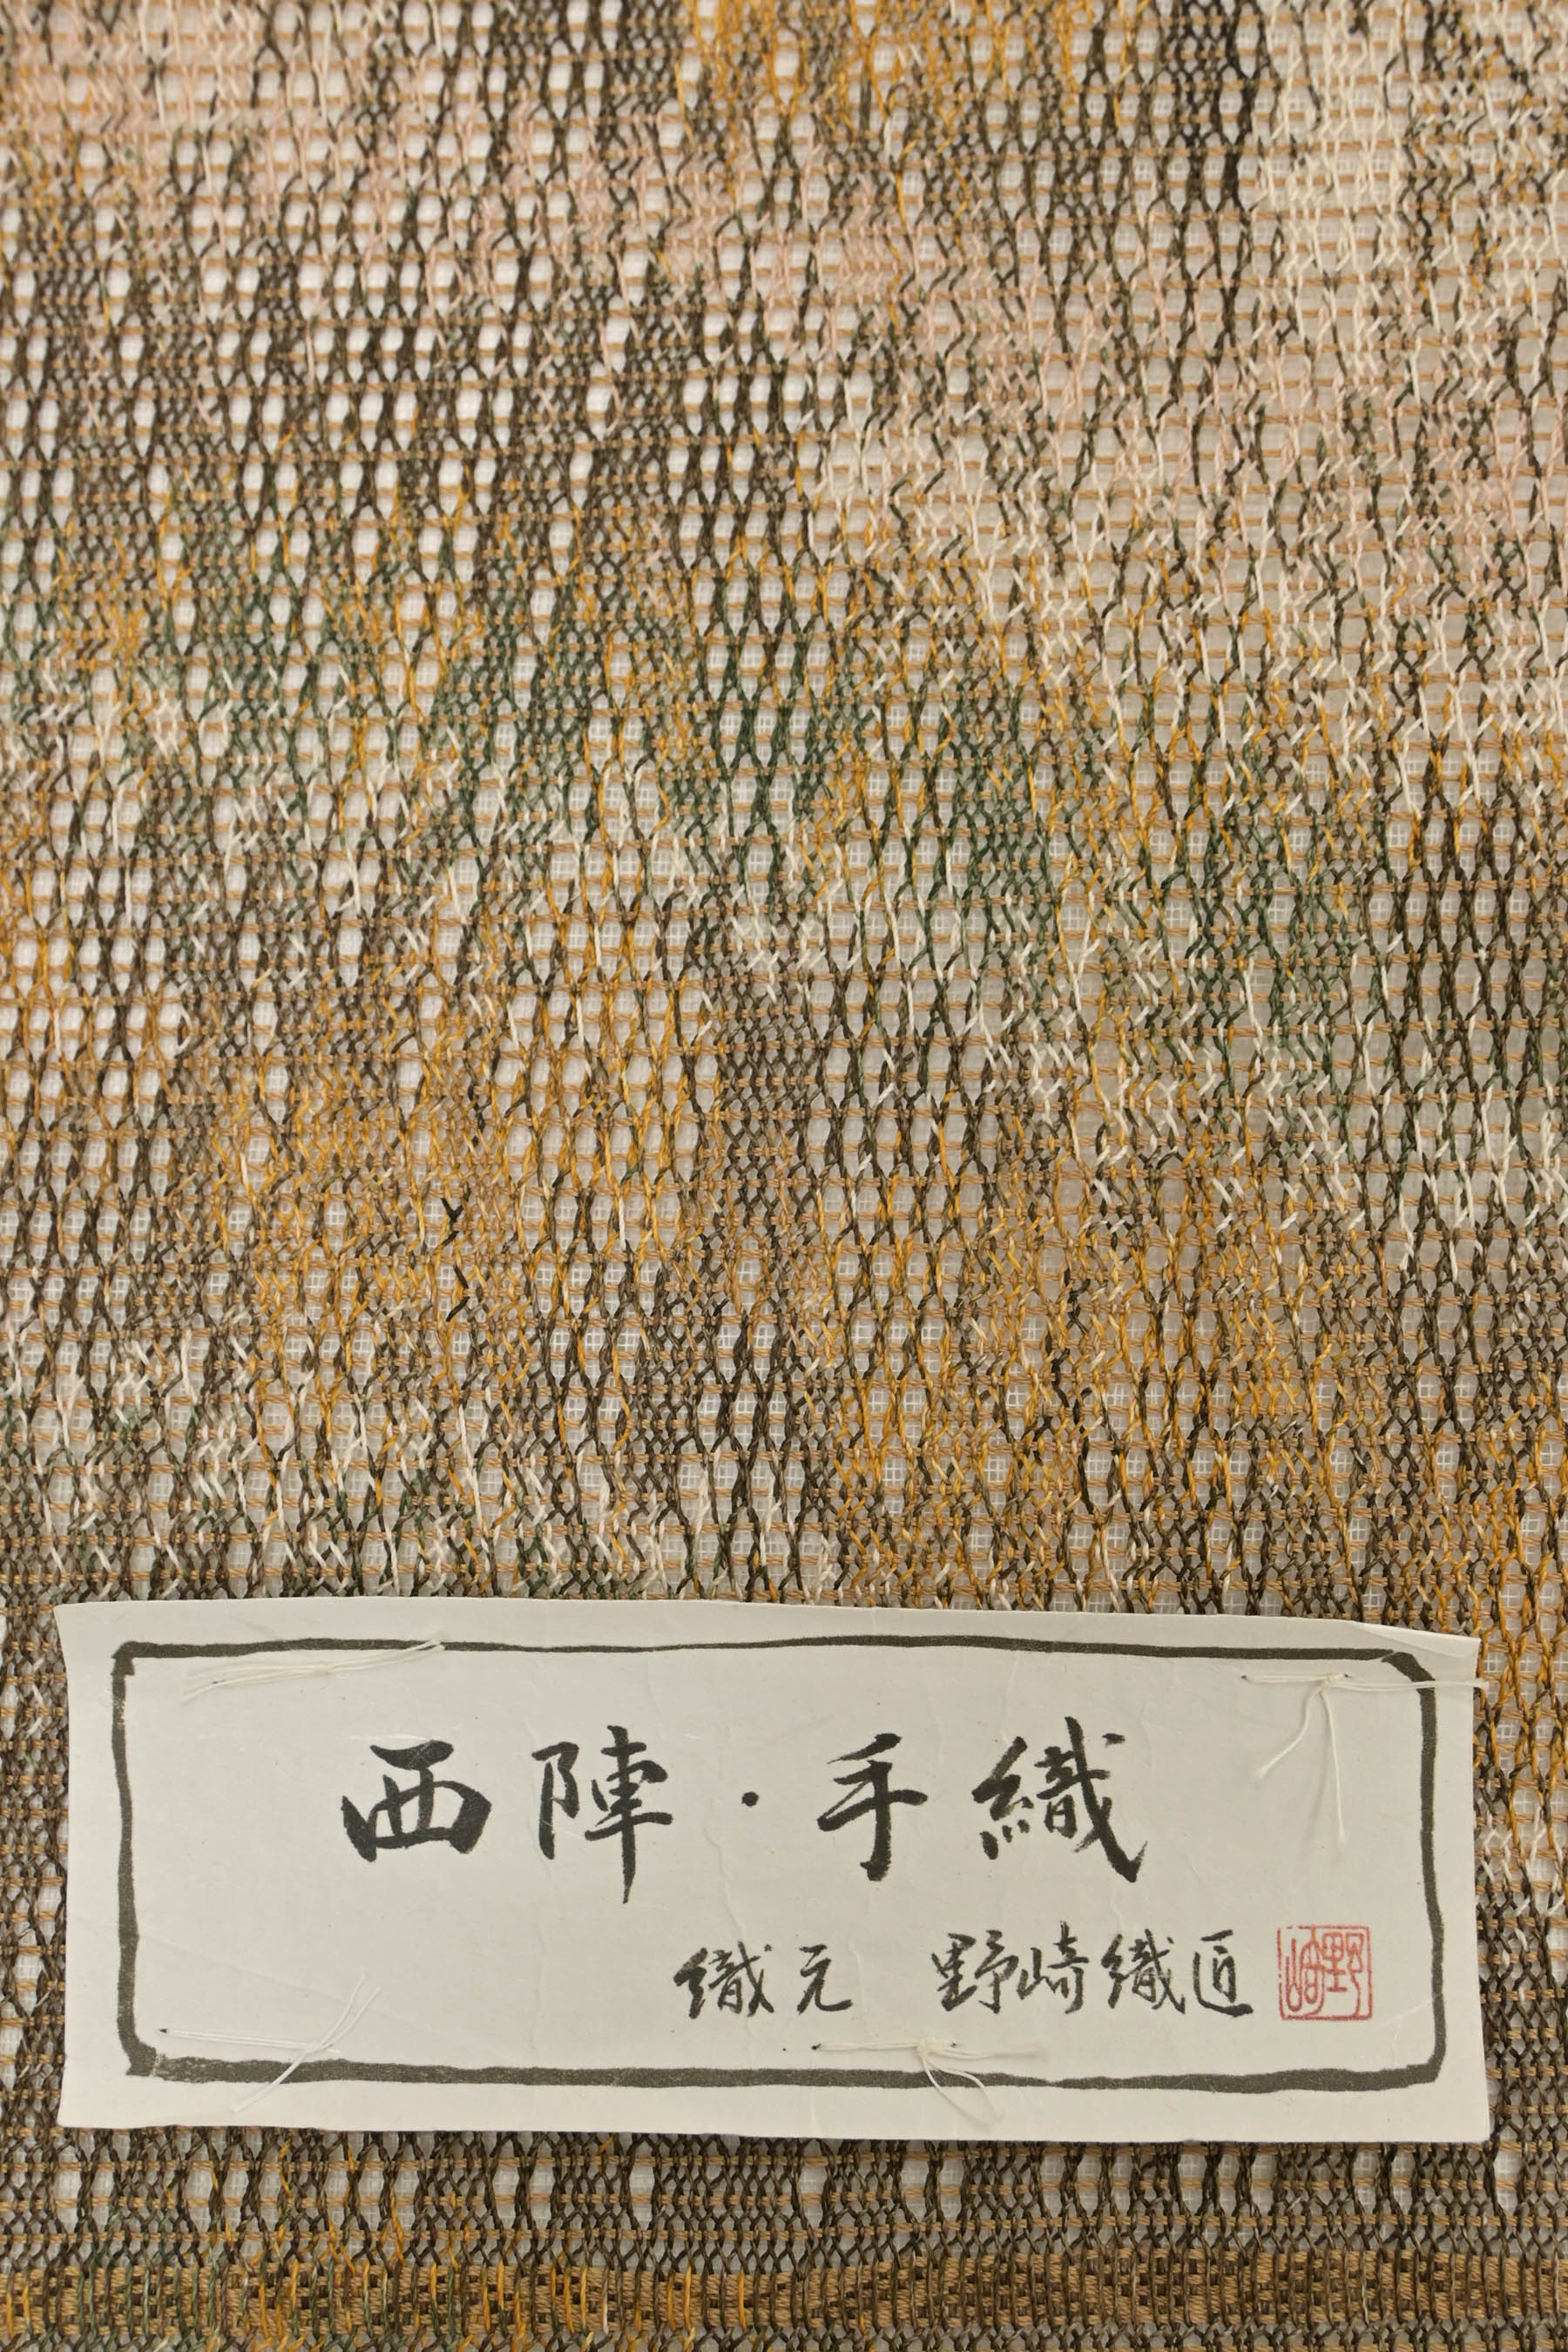 西陣・手織
織元 野崎織匠
野崎